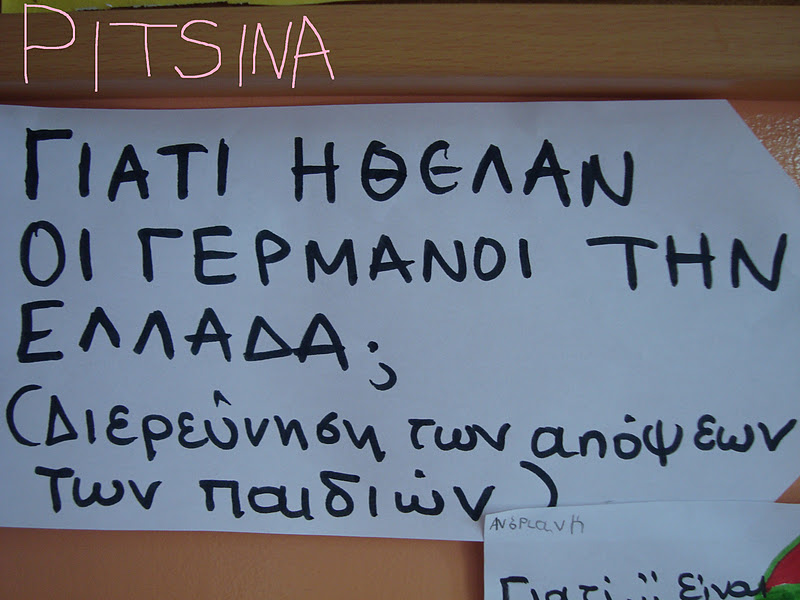 PITSINA
ΓΙΑΤΙ ΗΘΕΛΑΝ
ΟΙ ΓΕΡΜΑΝΟΙ ΤΗΝ
ΕΛΛΑΔΑ;
(Διερεύνηση των απόψεων
των παιδιών)
Ανδριανη
Γιατί είναι